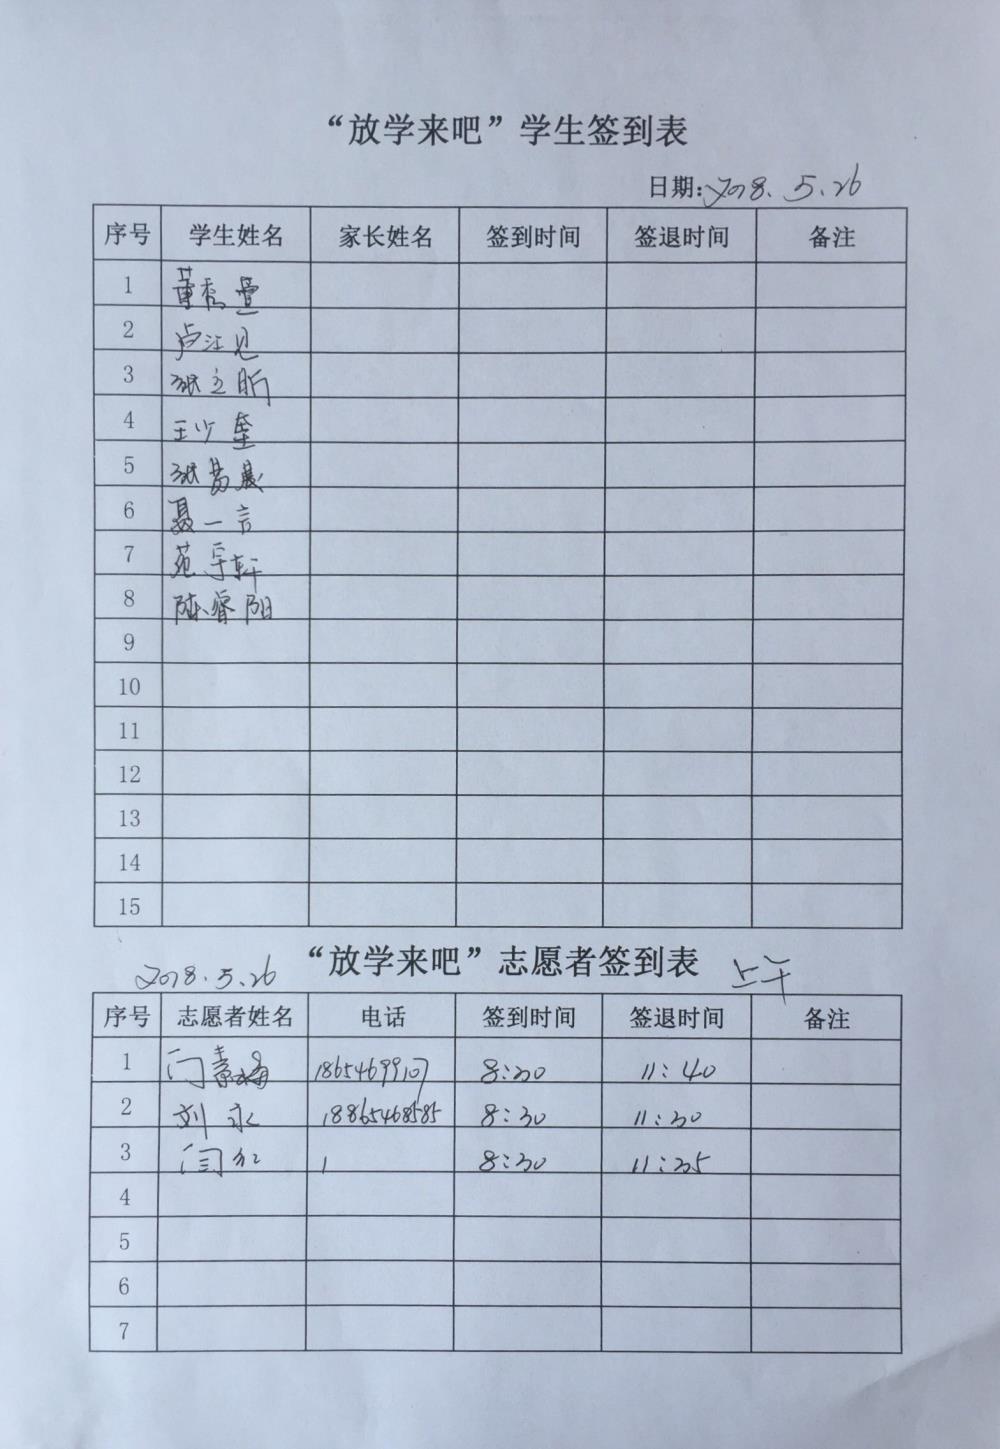 “放学来吧”学生签到表
日期:2018.5.26
序号 学生姓名 家长姓名 签到时间 签退时间 备注
1 董秀萱
2 卢江见
3 张立昕
4 王少奎
5 张芮晨
6 聂一言
7 苑宇轩
8 陈睿阳
9
10
11
12
13
14
15
“放学来吧”志愿者签到表
2018.5.26 上午
序号 志愿者姓名 电话 签到时间 签退时间 备注
1 门素梅 18654699107 8:30 11:40
2 刘永 18865468585 8:30 11:30
3 闫红 1 8:30 11:35
4
5
6
7